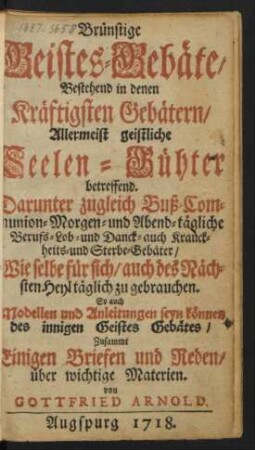 1887. 3658
Brünstige
Geistes-Gebäte/
Bestehend in denen
Kräftigsten Gebätern/
Allermeist geistliche
Seelen-Gühter
betreffend.
Darunter zugleich Buß-Com-
munion-Morgen-und Abend-tägliche
Berufs-Lob-und Danck-auch Kranck-
heits-und Sterbe-Gebäter/
Wie selbe für sich/auch des Näch-
sten Heyl täglich zu gebrauchen.
So auch
Modellen und Anleitungen seyn können
des innigen Geistes Gebätes/
Zusammt
Einigen Briefen und Reden/
über wichtige Materien.
von
GOTTFRIED ARNOLD.
Augspurg 1718.